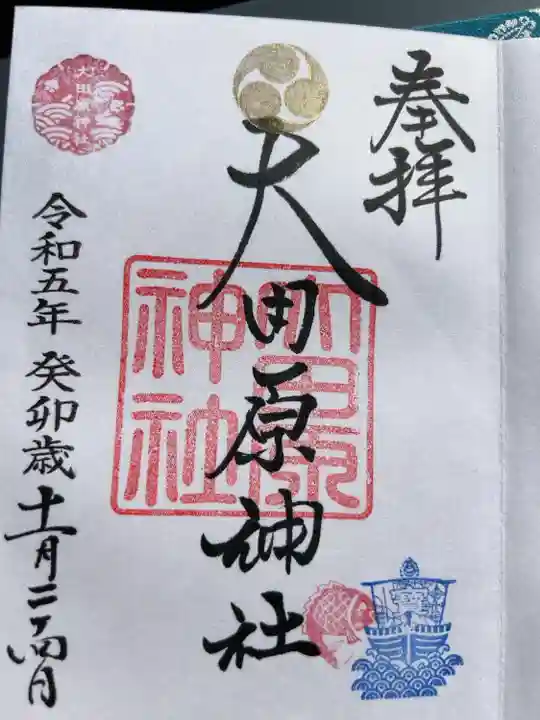 奉拝
大田原神社
大田原神社
大田原神社
令和五年 癸卯歳 十一月二十四日
寳